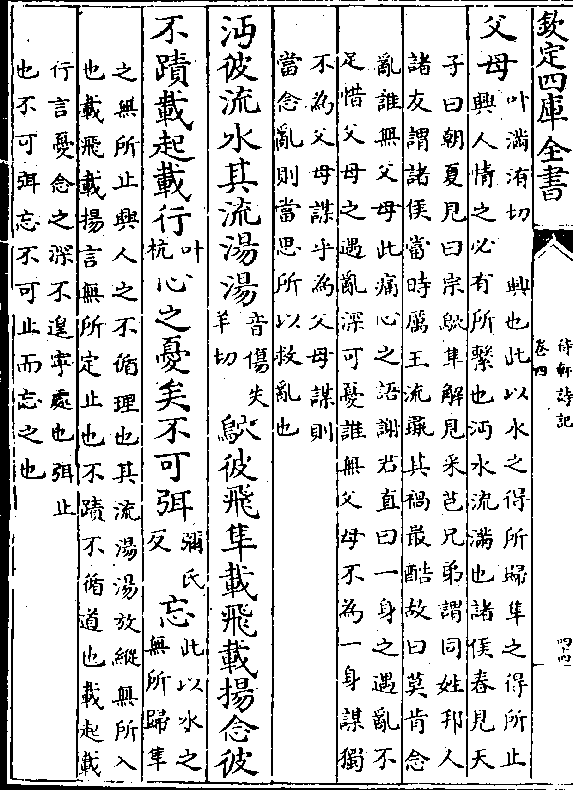 欽定四庫全書
待軒詩記
卷四
四十四
父母叶滿洧切 興也此以水之得所歸隼之得所止
興人情之必有所繫也沔水流滿也諸侯春見天
子曰朝夏見曰宗鴥隼解見采芑兄弟謂同姓邦人
諸友謂諸侯當時厲王流彘其禍最酷故曰莫肯念
亂誰無父母此痛心之語謝君直曰一身之遇亂不
足惜父母之遇亂深可憂誰無父母不為一身謀獨
不為父母謀乎為父母謀則
當念亂則當思所以救亂也
沔彼流水其流湯湯音傷失羊切鴥彼飛隼載飛載揚念彼
不蹟載起載行叶杭心之憂矣不可弭彌氏反忘此以水之無所歸隼
之無所止興人之不循理也其流湯湯放縱無所入
也載飛載揚言無所定止也不蹟不循道也載起載
行言憂念之深不遑寧處也弭止
也不可弭忘不可止而忘之也